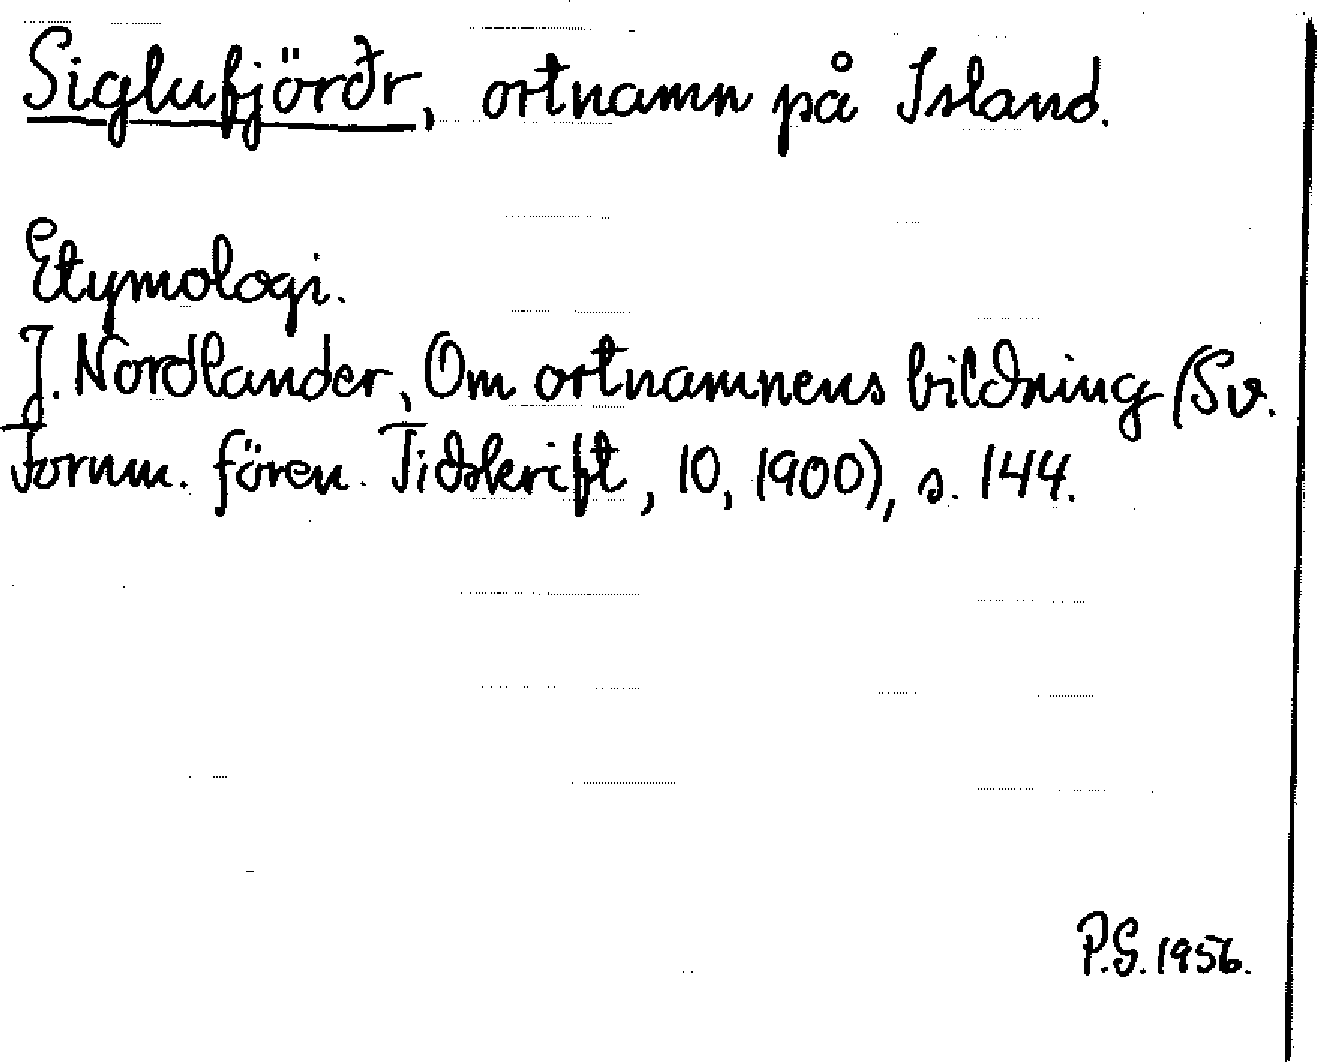 Siglufjörðr, ortnamn på Island.
Etymologi.
J. Nordlander, Om ortnamnens bildning (Sv.
Fornm. fören. Tidskrift, 10, 1900), s. 144.
P.G. 1956.